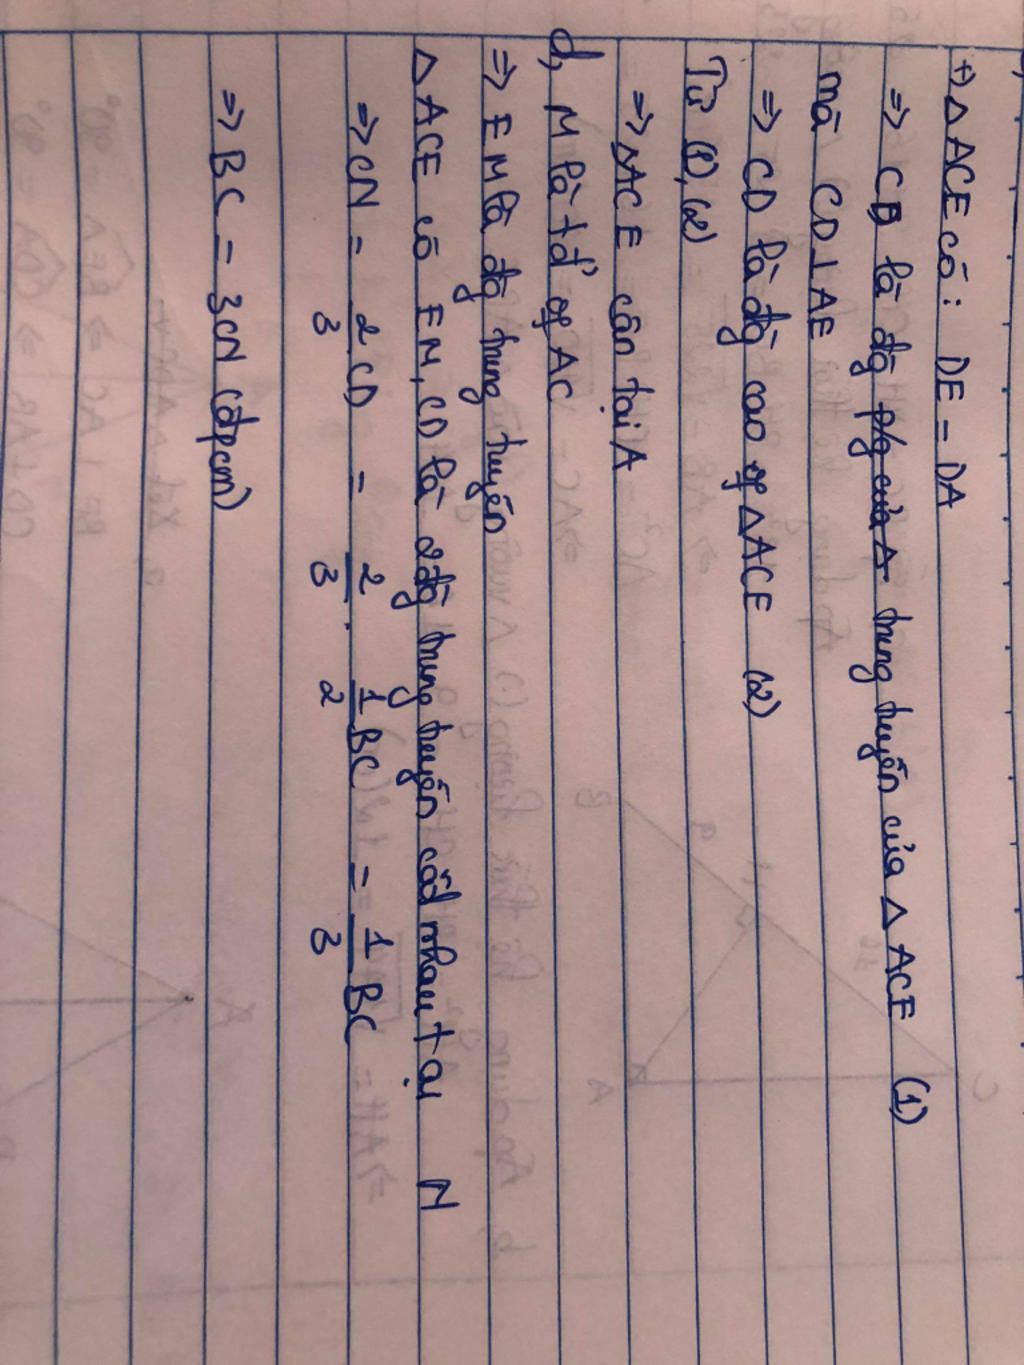 +) △ACE có: DE = DA
=> CD là đg p/g của △ trung tuyến của △ACE (1)
mà CD⊥AE
=> CD là đg cao of △ACE (2)
Từ (1), (2)
=> △ACE cân tại A
d, M là tđ of AC
=> EM là đg trung tuyến
△ACE có EM, CD là 2 đg trung tuyến cắt nhau tại N
=> CN = 2/3 CD = 2/3 . 1/2 BC = 1/3 BC
=> BC = 3CN (đpcm)